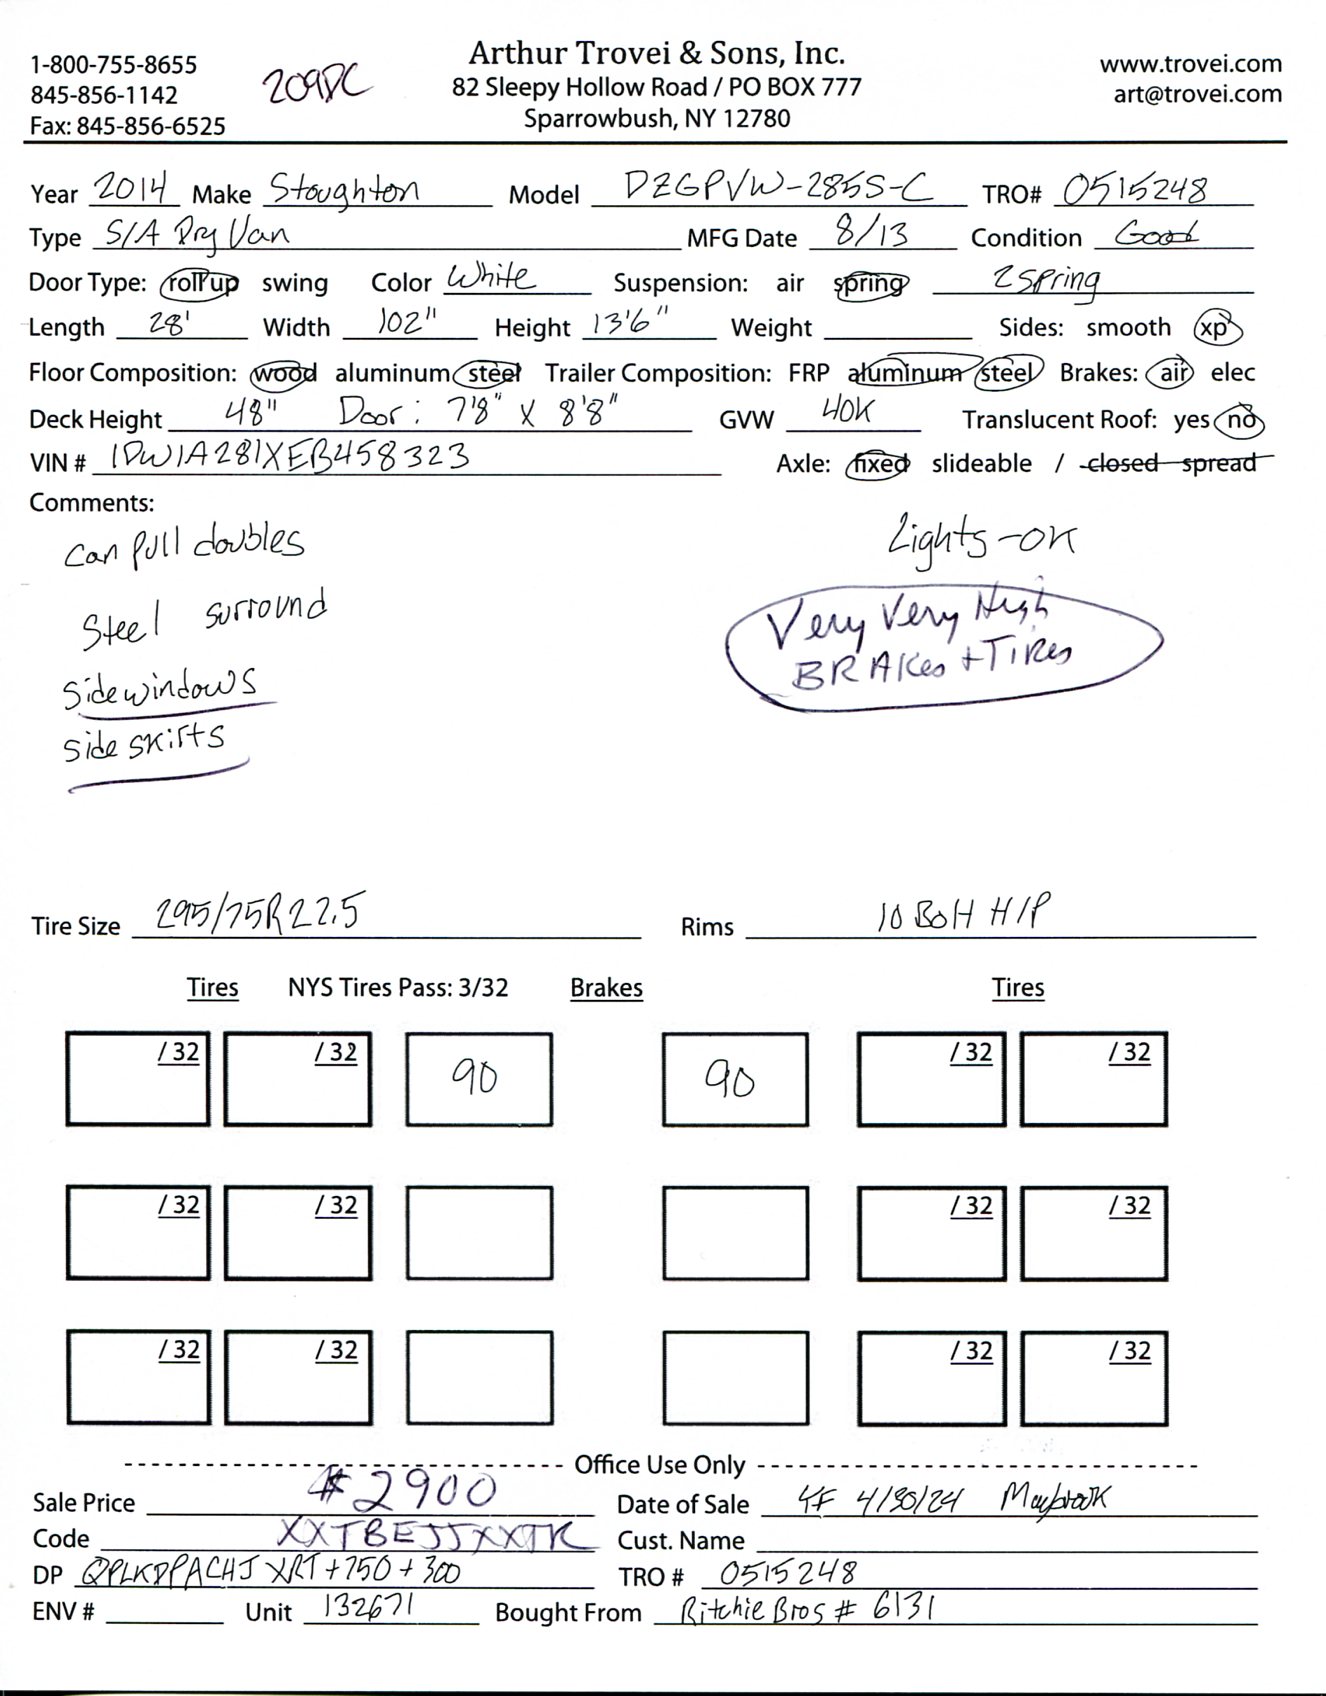 Arthur Trovei & Sons, Inc.
1-800-755-8655 82 Sleepy Hollow Road / PO BOX 777 www.trovei.com
845-856-1142 209DC art@trovei.com
Fax: 845-856-6525 Sparrowbush, NY 12780
Year 2014 Make Stoughton Model DZGPVW-285S-C TRO# 0515248
Type S/A Dry Van MFG Date 8/13 Condition Good
Door Type: roll up swing Color White Suspension: air spring 2 Spring
Length 28' Width 102" Height 13'6" Weight Sides: smooth xp
Floor Composition: wood aluminum steel Trailer Composition: FRP aluminum steel Brakes: air elec
Deck Height 48" Door: 7'8" X 8'8" GVW 40K Translucent Roof: yes no
VIN # 1DW1A281XEB458323 Axle: fixed slideable / closed spread
Comments:
can pull doubles Lights-OK
Steel surround Very Very High
BRAKes + TiRes
Side windows
side skirts
Tire Size 295/75R22.5 Rims 10 BoH H/P
Tires NYS Tires Pass: 3/32 Brakes Tires
/ 32 / 32 90 90 / 32 / 32
/ 32 / 32 / 32 / 32
/ 32 / 32 / 32 / 32
Office Use Only
Sale Price $2900 Date of Sale 4/30/24 Maybrook
Code XXTBEJJXXTK Cust. Name
DP QPLKDPACHJ XRT+750+300 TRO # 0515248
ENV # Unit 132671 Bought From Ritchie Bros # 6131